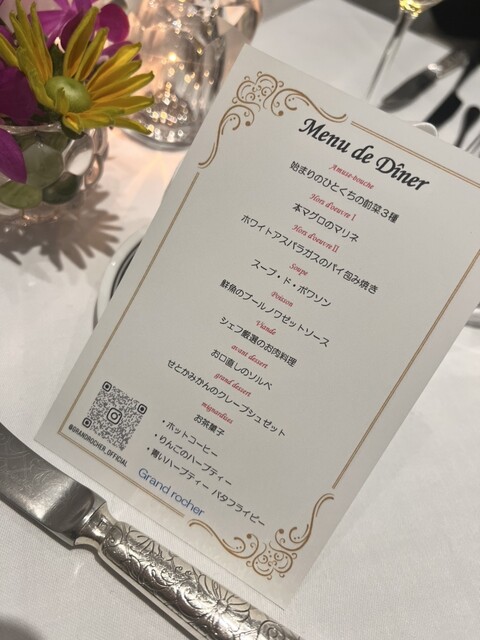 Menu de Dîner
Amuse-bouche
始まりのひとくちの前菜3種
Hors d'oeuvre I
本マグロのマリネ
Hors d'oeuvre II
ホワイトアスパラガスのパイ包み焼き
Soupe
スープ・ド・ポワソン
Poisson
鮮魚のブールノワゼットソース
Viande
シェフ厳選のお肉料理
avant dessert
お口直しのソルベ
grand dessert
せとかみかんのクレープシュゼット
mignardises
お茶菓子
・ホットコーヒー
・りんごのハーブティー
・青いハーブティー バタフライピー
@GRANDROCHER_OFFICIAL
Grand rocher